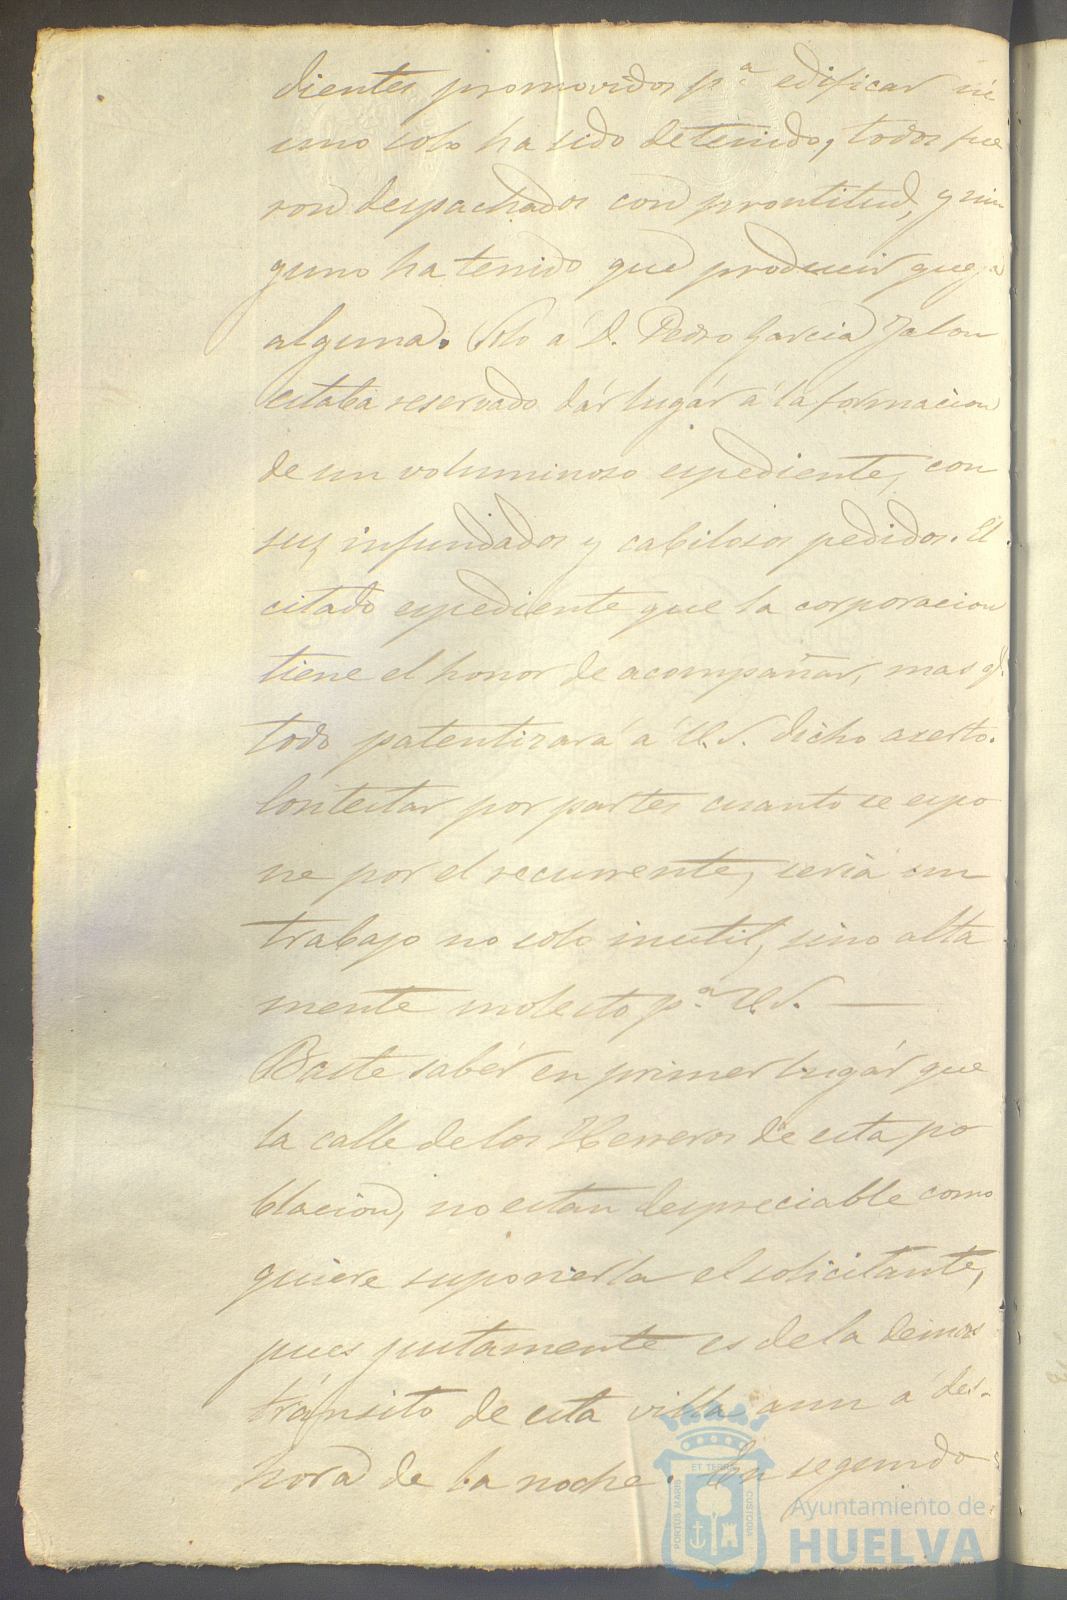 dientes promovidos p.ª edificar ni
uno solo ha sido detenido, todos fue
ron despachados con prontitud, y nin
guno ha tenido que producir queja
alguna. Solo á D. Pedro Garcia Jalon
estaba reservado dár lugár á la formacion
de un voluminoso espediente, con
sus infundados y cabilosos pedidos. El
citado espediente que la corporacion
tiene el honor de acompañar, mas q.e
todo patentizará á U.S. dicho aserto.
Contestar por partes cuanto se espo
ne por el recurrente, seria un
trabajo no solo inutil, sino alta
mente molesto p.ª U.S.
Baste sabér en primer lugár que
la calle de los Herreros de esta po
blacion, no es tan despreciable como
quiere suponerla el solicitante,
pues justamente es de la de mas
tránsito de esta villa aun á des-
hora de la noche. En segundo
ET TERRA
PORTUS MARIS
CUSTODIA
Ayuntamiento de
HUELVA